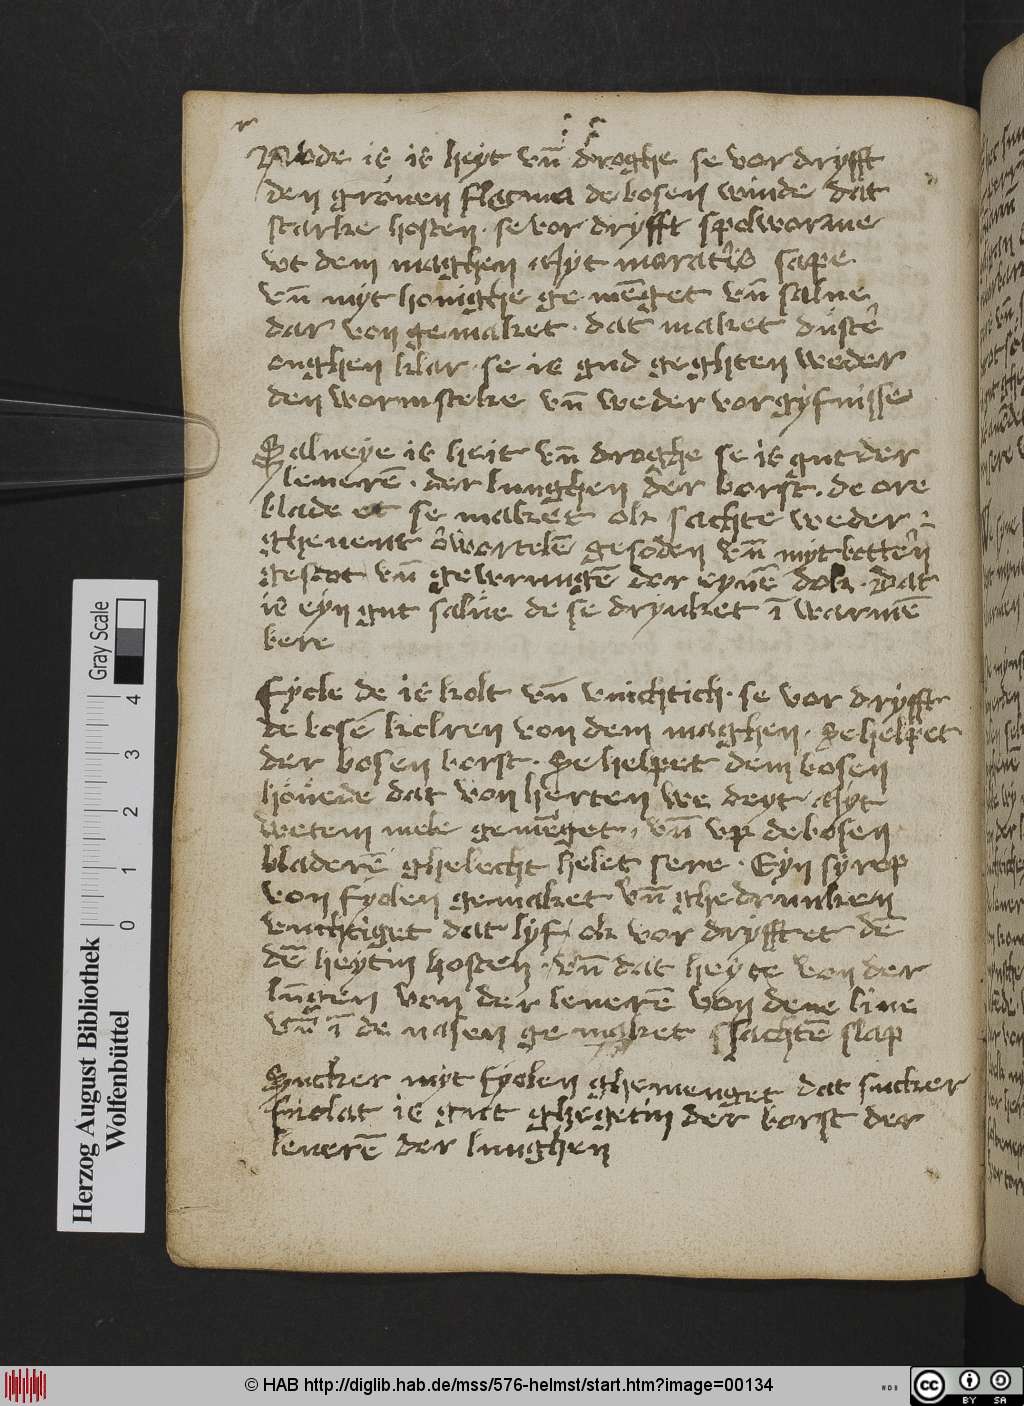 Rude is is heyt vn̄ droghe se vor dryfft
den grouen flegma de bosen winde dat
starke hosten · se vor dryfft spolworme
vt dem maghen Myt sape
vn̄ myt honighe ge mēget vn̄ salue
dar von gemaket · dat maket duster
oughen klar · se is gud geghten weder
den wormsteke vn̄ weder vorgyfnisse
Salueye is heit vn̄ droghe se is gut der
leuerē · der lunghen der borst · de ore
blade et se maket ok sachte weder
gheuent wortelē gesoden vn̄ myt botter
gestot vn̄ gewrungē dor eynē dok · Dat
is eyn gut salue de se drynket ī warmē
bere
Fyole de is kolt vn̄ vuichtich · se vor dryfft
de bosē kolren von dem maghen · Se helpet
der bosen borst · Se helpet dem bosen
houede dat von herten we deyt Myt
wetem mele gemēget · vn̄ vp de bosen
bladerē ghelecht helet sere · Eyn syrop
von fyolen gemaket vn̄ ghedrunken
vuchtiget dat lyf ok vor dryfftet dē
dē heytin hosten · vn̄ dat heyte von der
lūgen von der leuerē von deme liue
vn̄ ī de nasen ge maket ssachtē slap
Sucker myt fyolen ghemenget dat sucker
fiiolat is gut ghegetin der borst der
leuerē der lunghen
Herzog August Bibliothek
Wolfenbüttel
0 1 2 3 4
Gray Scale
© HAB http://diglib.hab.de/mss/576-helmst/start.htm?image=00134
cc BY SA